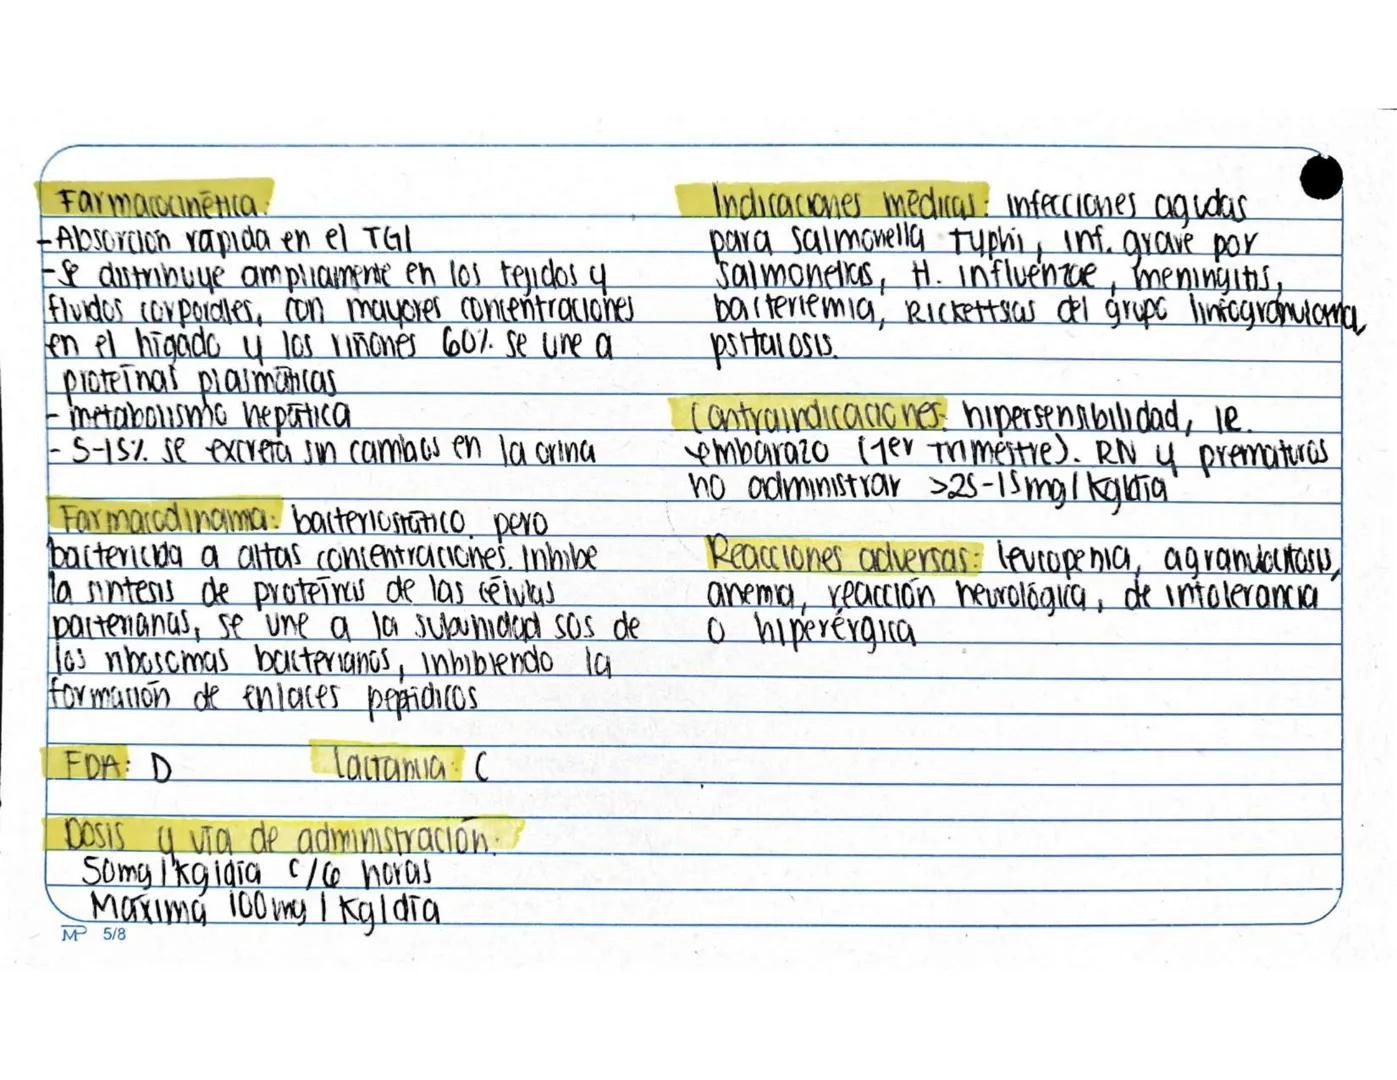 Farmacocinética:
- Absorción rápida en el TGI
- Se distribuye ampliamente en los tejidos y
fluidos corporales, con mayores concentraciones
en el hígado y los riñones 60% se une a
proteínas plasmáticas
- metabolismo hepática
- 5-15% se excreta sin cambios en la orina
Farmacodinamia: bacteriostático pero
bactericida a altas concentraciones. Inhibe
la síntesis de proteínas de las células
bacterianas, se une a la subunidad 50s de
los ribosomas bacterianos, inhibiendo la
formación de enlaces peptídicos
FDA: D
Lactancia: C
Dosis y vía de administración:
50mg/kg/día c/6 horas
Máxima 100mg/kg/día
MP 5/8
Indicaciones médicas: infecciones agudas
para salmonella typhi, inf. grave por
salmonellas, H. influenzae, meningitis,
bacteriemia, Rickettsias del grupo linfogranuloma,
psitacosis.
Contraindicaciones: hipersensibilidad, IR.
embarazo (1er trimestre). RN y prematuros
no administrar >25-15mg/kg/día
Reacciones adversas: leucopenia, agranulocitosis,
anemia, reacción neurológica, de intolerancia
o hiperérgica